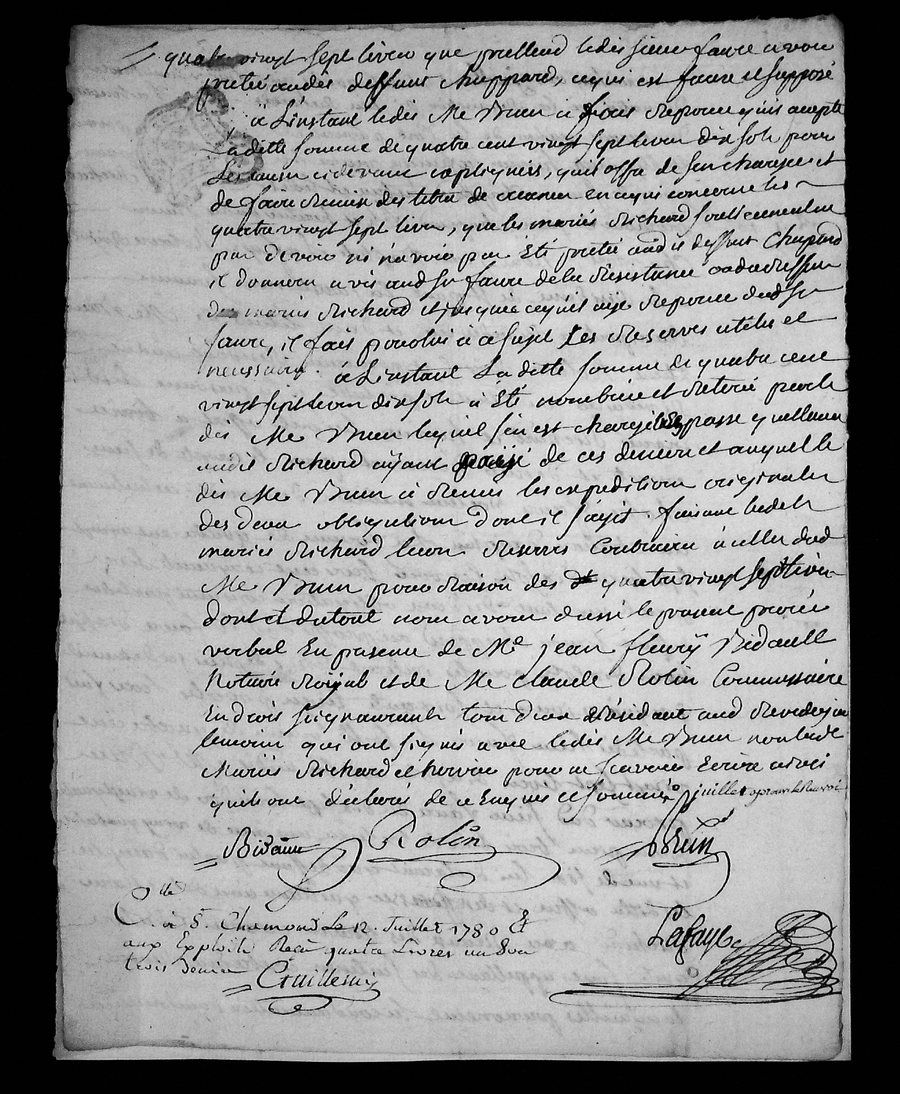 quatre vingt sept livres que prettend ledit sieur faure avoir
prettée audit deffunt Chuppard, ce qui est faux et supposé
à L'instant ledit Me Brun à fait Reponce qu'il accepte
La ditte somme de quatre cent vingt sept livres dix sols pour
Les causes cidevant expliquées, qu'il offre de s'en charger et
de faire Remise des titres de creances en ce qui concerne les
quatre vingt sept livres, que les mariés Richard soutiennent ne
pas devoir ni n'avoir pas Eté prettée audit deffunt Chuppard
il donnera avis aud sr faure de la Resistance
des mariés Richard et jusqu'à ce qu'il aye Reponce dud sr
faure, il fait pour lui à ce sujet Les Reserves utiles et
necessaires. à L'instant La ditte somme de quatre cent
vingt sept livres dix sols à Eté nombrée et Retirée par le
dit Me Brun lequel s'en est chargé et passe quittance
audit Richard ayant payé de ces deniers et auquel le
dit Me Brun à Remis les expeditions originales
des deux obligations dont il s'agit. faisant lesdits
mariés Richard leurs Reserves Contraires à celles dud
Me Brun pour Raison des dt quatre vingt sept livres
dont et du tout nous avons dressé le present procés
verbal En presence de Me jean fleury Bidault
Notaire Royal et de Me Claude Rolin Commissaire
En droits seigneuriaux tous deux Résidant aud
temoins qui ont signés avec ledit Me Brun non lesdits
Mariés Richard et pour ne sçavoir Ecrire ainsi
qu'ils ont déclarés de ce Enquis et sommés juillet approuvé
Bidault Rolin Bruin
Clle
à St Chamond Le 12 Juillet 1780 &
aux Exploits Recu quatre Livres un Sou
trois denier
Lafaye